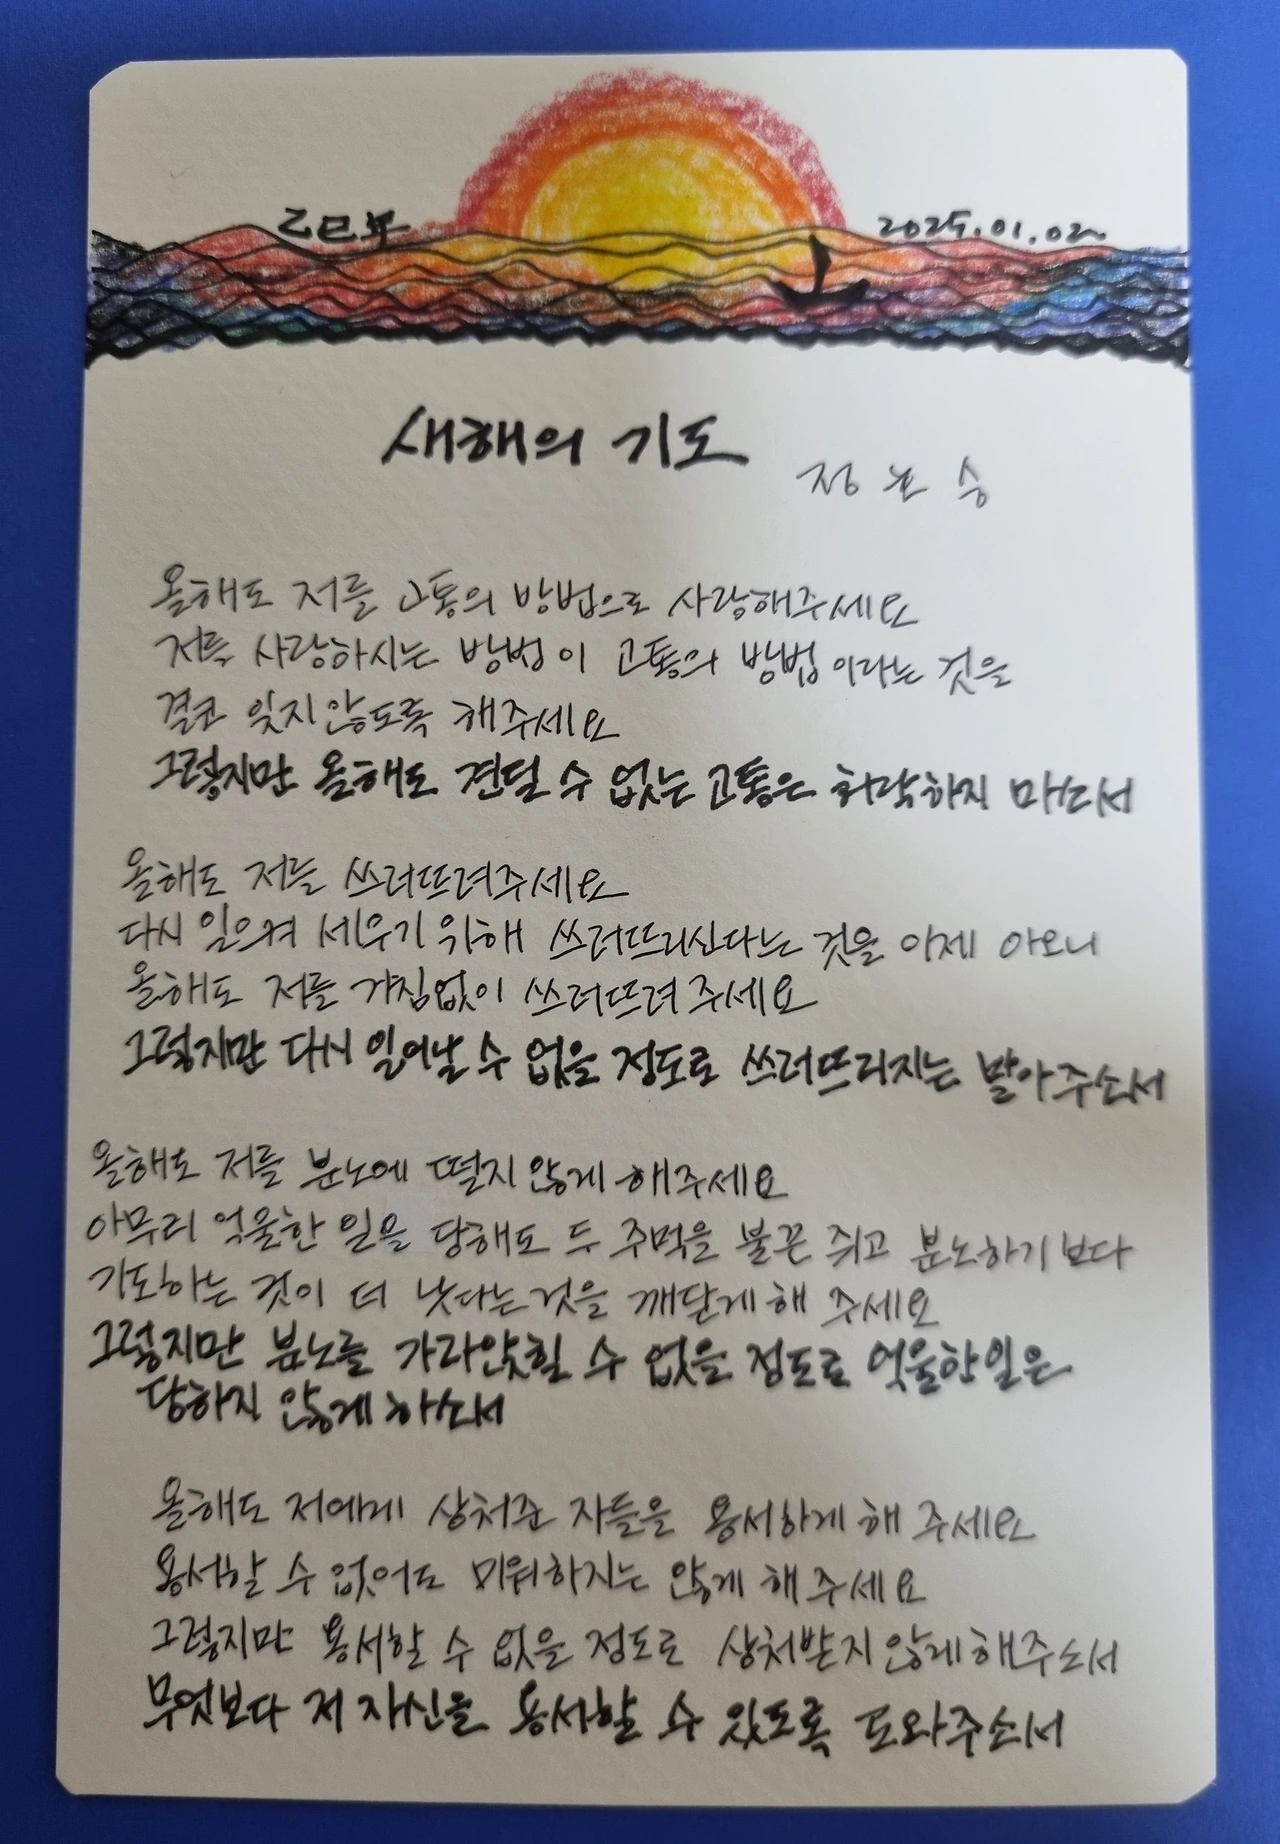 乙巳年
2025.01.02
새해의 기도
정호승
올해도 저를 고통의 방법으로 사랑해주세요
저를 사랑하시는 방법이 고통의 방법이라는 것을
결코 잊지 않도록 해주세요
그렇지만 올해도 견딜 수 없는 고통은 허락하지 마소서
올해도 저를 쓰러뜨려주세요
다시 일으켜 세우기 위해 쓰러뜨리신다는 것을 이제 아오니
올해도 저를 거침없이 쓰러뜨려 주세요
그렇지만 다시 일어날 수 없을 정도로 쓰러뜨리지는 말아주소서
올해도 저를 분노에 떨지 않게 해주세요
아무리 억울한 일을 당해도 두 주먹을 불끈 쥐고 분노하기보다
기도하는 것이 더 낫다는 것을 깨닫게 해 주세요
그렇지만 분노를 가라앉힐 수 없을 정도로 억울한 일은
당하지 않게 하소서
올해도 저에게 상처준 자들을 용서하게 해 주세요
용서할 수 없어도 미워하지는 않게 해 주세요
그렇지만 용서할 수 없을 정도로 상처받지 않게 해주소서
무엇보다 저 자신을 용서할 수 있도록 도와주소서